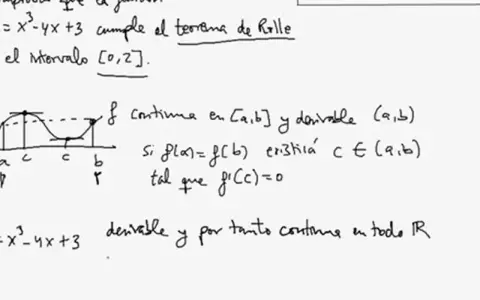 que la función
= x³-4x+3 cumple el teorema de Rolle
el intervalo [0,2].
f continua en [a,b] y derivable (a,b)
a c c b
si f(a)=f(b) existirá c ∈ (a,b)
tal que f'(c)=0
= x³-4x+3 derivable y por tanto continua en todo ℝ